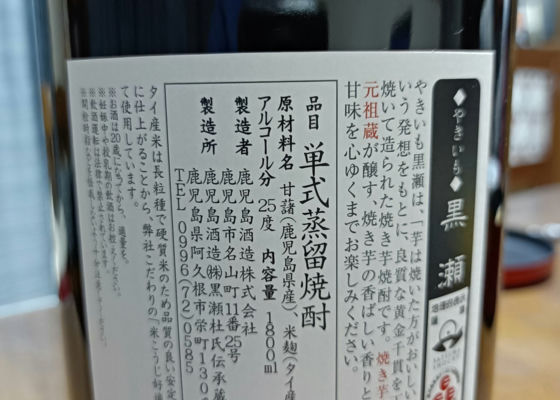 ◆やきいも◆黒瀬
やきいも黒瀬は、「芋は焼いた方がおいしい
いう発想をもとに、良質な黄金千貫を
焼いて造られた焼き芋焼酎です。焼き芋
元祖蔵が醸す、焼き芋の香ばしい香りと
甘味を心ゆくまでお楽しみください。
品目 単式蒸留焼酎
原材料名 甘藷(鹿児島県産)、米麹(タイ産
アルコール分 25度 内容量 1800ml
製造者 鹿児島酒造株式会社
鹿児島市名山町11番25号
製造所 鹿児島酒造㈱黒瀬杜氏伝承蔵
鹿児島県阿久根市栄町130
TEL 0996(72)0585
タイ産米は長粒種で硬質米のため品質の良い安定
に仕上がることから、弊社こだわりの「米こうじ好適
て使用しています。
※お酒は20歳になってから、適量を。
※妊娠中や授乳期の飲酒はお控えください。
※飲酒運転は法律で禁止されています。